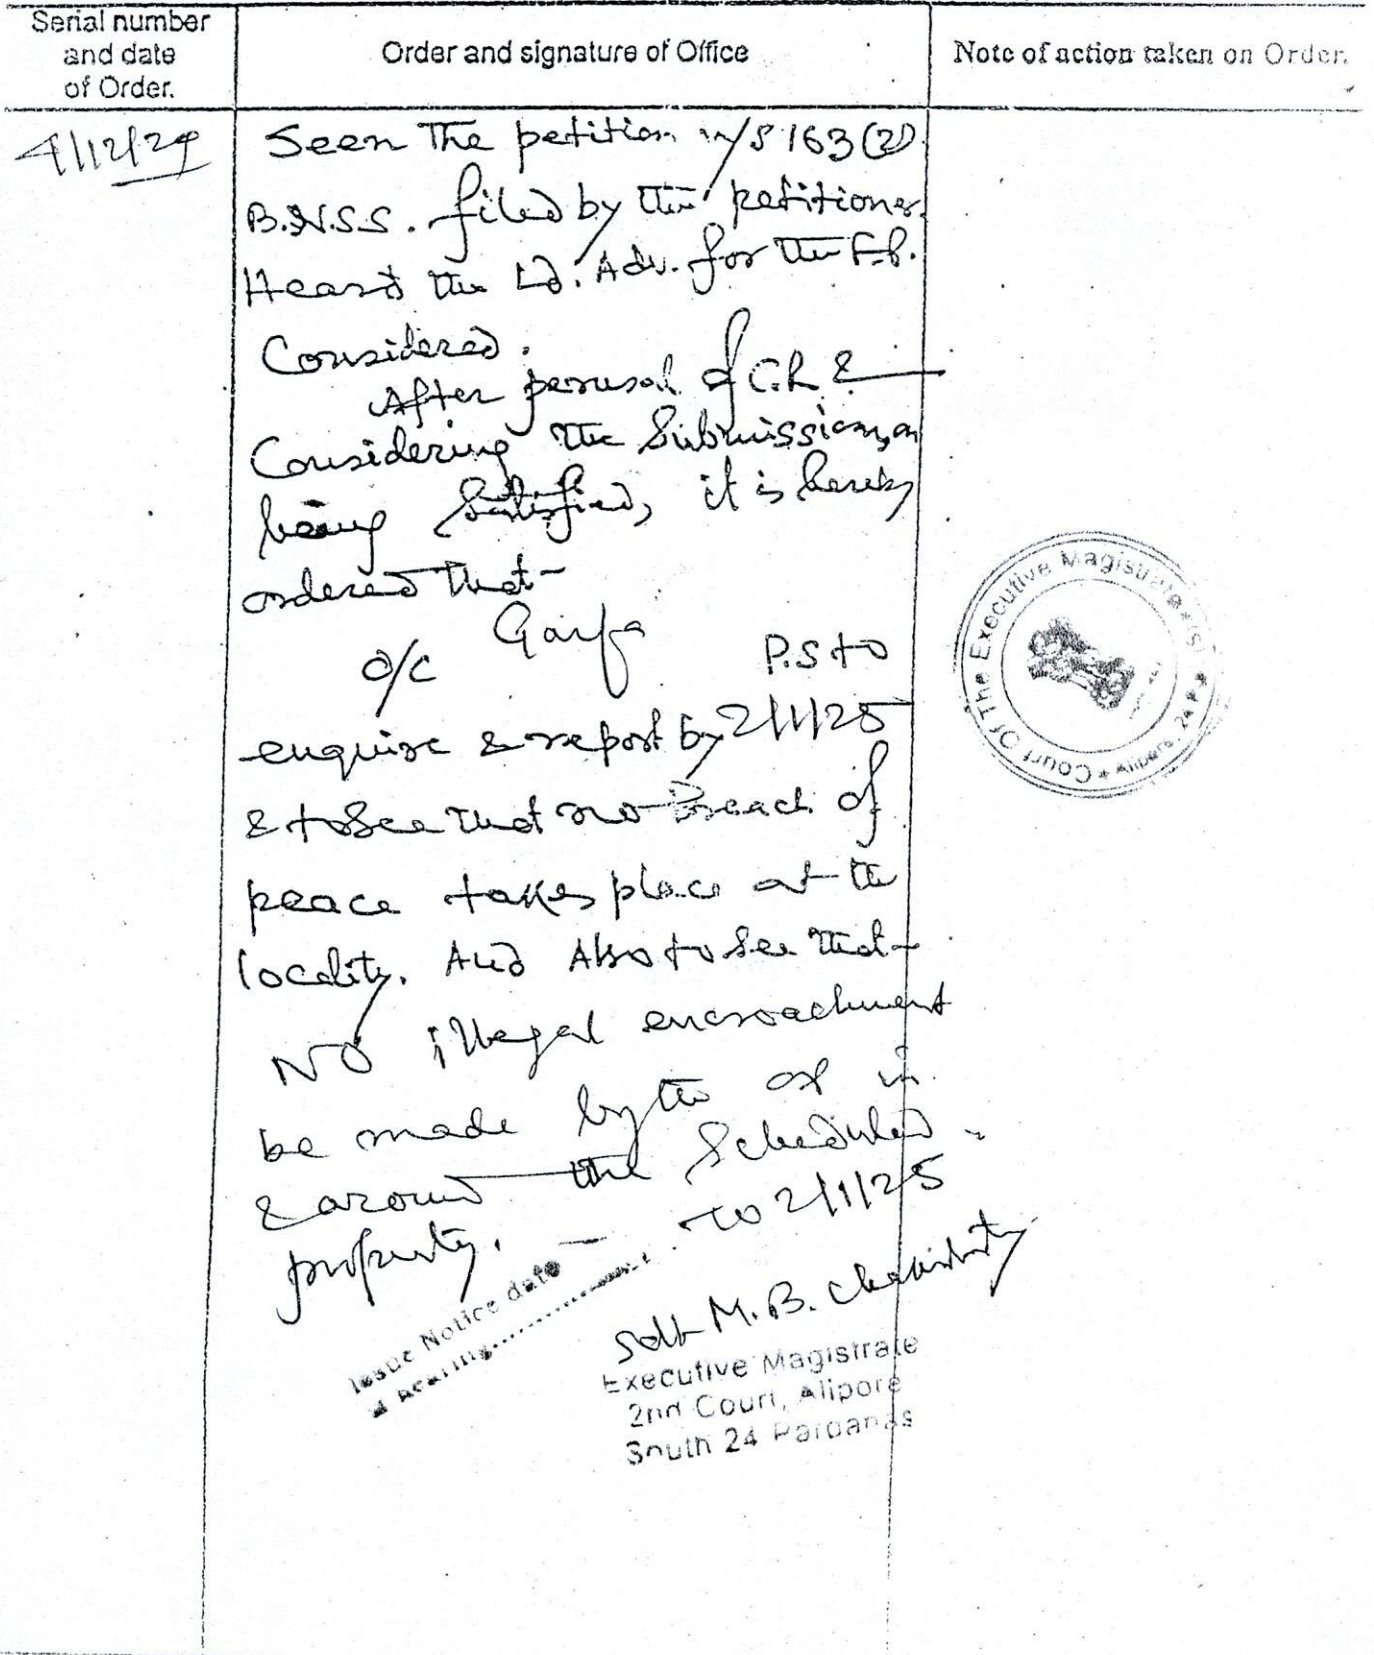 Serial number
and date
of Order.
Order and signature of Office
Note of action taken on Order.
4/12/24
Seen The petition u/S 163(2)
B.N.S.S. filed by the petitioner.
Heard the Ld. Adv. for the F.P.
Considered.
After perusal of C.R &
Considering the Submission, on
being Satisfied, it is hereby
ordered that-
O/C Garfa P.S to
enquire & report by 2/1/25
& to See that no Breach of
peace takes place at the
locality. And Also to See that
NO illegal encroachment
be made by the OP in
& around the Scheduled
property. - To 2/1/25
Issue Notice date
Hearing
Sd/- M. B. Chakraborty
Executive Magistrate
2nd Court, Alipore
South 24 Parganas
Court Of The Executive Magistrate
Alipore, 24 P